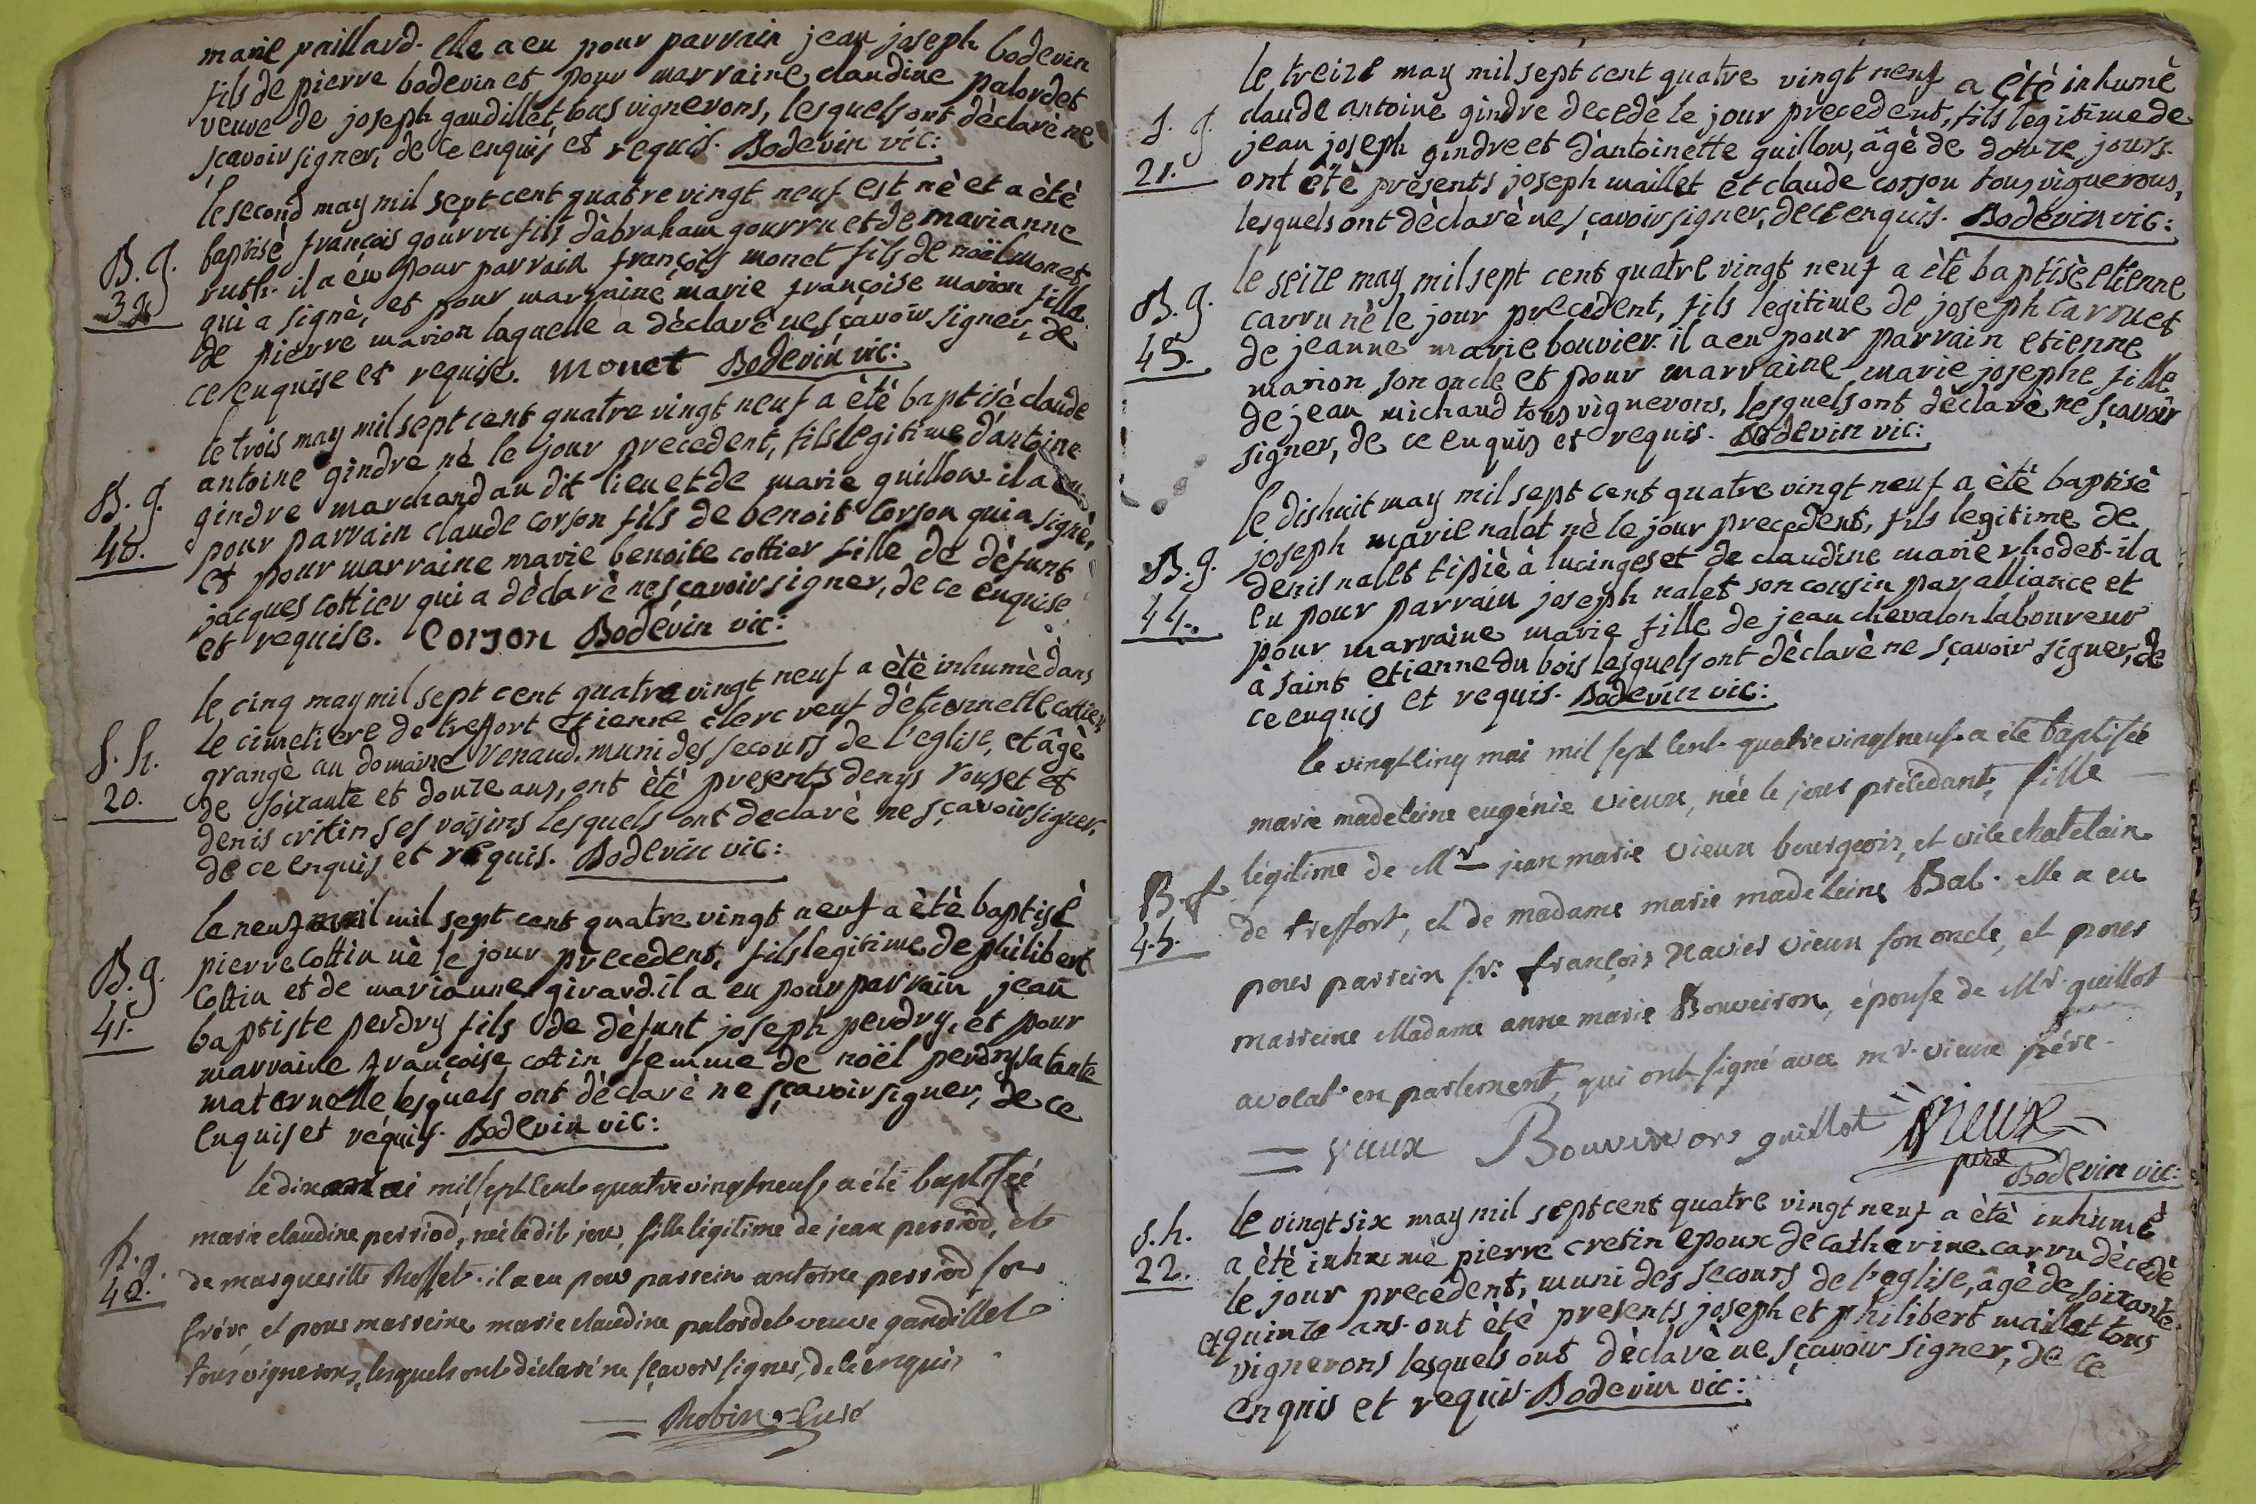 marie paillard. elle a eu pour parrain jean joseph bodevin
fils de pierre bodevin et pour marraine claudine palordet
veuve de joseph gaudillet tous vignerons, lesquels ont dèclarè ne
sçavoir signer, de ce enquis et requis. Bodevin vic:
le second may mil sept cent quatre vingt neuf est nè et a ètè
B. g.
39
baptisè françois gourru fils d'abraham gourru et de marianne
ruth. il a eu pour parrain françois monet fils de noël monet
qui a signè, et pour marraine marie françoise marion fille
de pierre marion laquelle a dèclarè ne sçavoir signer, de
ce enquise et requise. Monet Bodevin vic:
le trois may mil sept cent quatre vingt neuf a ètè baptisè claude
B. g.
40.
antoine gindre nè le jour precedent, fils legitime d'antoine
gindre marchand au dit lieu et de marie guillow. il a eu
pour parrain claude corson fils de benoit Corson qui a signè,
et pour marraine marie benoite cottier fille de dèfunt
jacques cottier qui a dèclarè ne sçavoir signer, de ce enquise
et requise. Corson Bodevin vic:
le cinq may mil sept cent quatre vingt neuf a ètè inhumè dans
S. h.
20.
le cimetiere de treffort etienne clerc veuf d'etiennette cottier
grangè au domaine Venaud. muni des secours de l'eglise, et âgè
de soixante et douze ans, ont ètè presents denys rouset et
denis critin ses voisins lesquels ont declarè ne sçavoir signer,
de ce enquis et requis. Bodevin vic:
le neuf mil sept cent quatre vingt neuf a ètè baptisè
B. g.
41.
pierre Cottin nè le jour precedent, fils legitime de philibert
Cottin et de marianne girard. il a eu pour parrain jean
baptiste perdry fils de dèfunt joseph perdry, et pour
marraine françoise cottin femme de noël perdry sa tante
maternelle lesquels ont dèclarè ne sçavoir signer, de ce
enquis et requis. Bodevin vic:
le dix mai mil sept cent quatre vingt neuf a été baptisée
B. g.
42.
marie claudine perriod, née le dit jour, fille légitime de jean perriod, et
de margueritte Rosset. il a eu pour parrein antoine perriod son
frére et pour marreine marie claudine palordet veuve gandillet
tous vignerons, lesquels ont déclaré ne sçavoir signer, de ce enquis
Robin Curé
le treize may mil sept cent quatre vingt neuf a ètè inhumè
S. g.
21.
claude antoine gindre decedè le jour precedent, fils legitime de
jean joseph gindre et d'antoinette guillow, âgè de douze jours.
ont ètè prèsents joseph maillet et claude corson tous vignerons,
lesquels ont dèclarè ne sçavoir signer, de ce enquis. Bodevin vic:
le seize may mil sept cent quatre vingt neuf a ètè baptisè etienne
B. g.
43.
carru nè le jour precedent, fils legitime de joseph carru et
de jeanne marie bouvier. il a eu pour parrain etienne
marion son oncle et pour marraine marie josephe fille
de jean michaud tous vignerons, lesquels ont dèclarè ne sçavoir
signer, de ce enquis et requis. Bodevin vic:
le dishuit may mil sept cent quatre vingt neuf a ètè baptisè
B. g.
44.
joseph marie nalet nè le jour precedent, fils legitime de
denis nalet tipiè à lucinges et de claudine marie rhodet. il a
eu pour parrain joseph nalet son cousin par alliance et
pour marraine marie fille de jean chevalon laboureur
à saint etienne du bois lesquels ont dèclarè ne sçavoir signer, de
ce enquis et requis. Bodevin vic:
le vingt cinq mai mil sept cent quatre vingt neuf a été baptisée
marie madeleine eugénie vieux, née le jour précédant, fille
B. f.
45.
légitime de Mr jean marie vieux bourgeois, et vile chatelain
de treffort, et de madame marie madeleine Bal. elle a eu
pour parrein sr. françois Xavier vieux son oncle, et pour
marreine Madame anne marie Bouveiron, épouse de Mr. guillot
avocat en parlement, qui ont signé avec mr. vieux pére.
vieux Bouveiron guillot Vieux
père
Bodevin vic:
le vingt six may mil sept cent quatre vingt neuf a ètè inhumè
S. h.
22.
a ètè inhumè pierre cretin epoux de catherine carru dècedè
le jour precedent, muni des secours de l'eglise, âgè de soixante
et quinze ans. ont ètè presents joseph et philibert maillet tous
vignerons lesquels ont dèclarè ne sçavoir signer, de ce
enquis et requis. Bodevin vic: